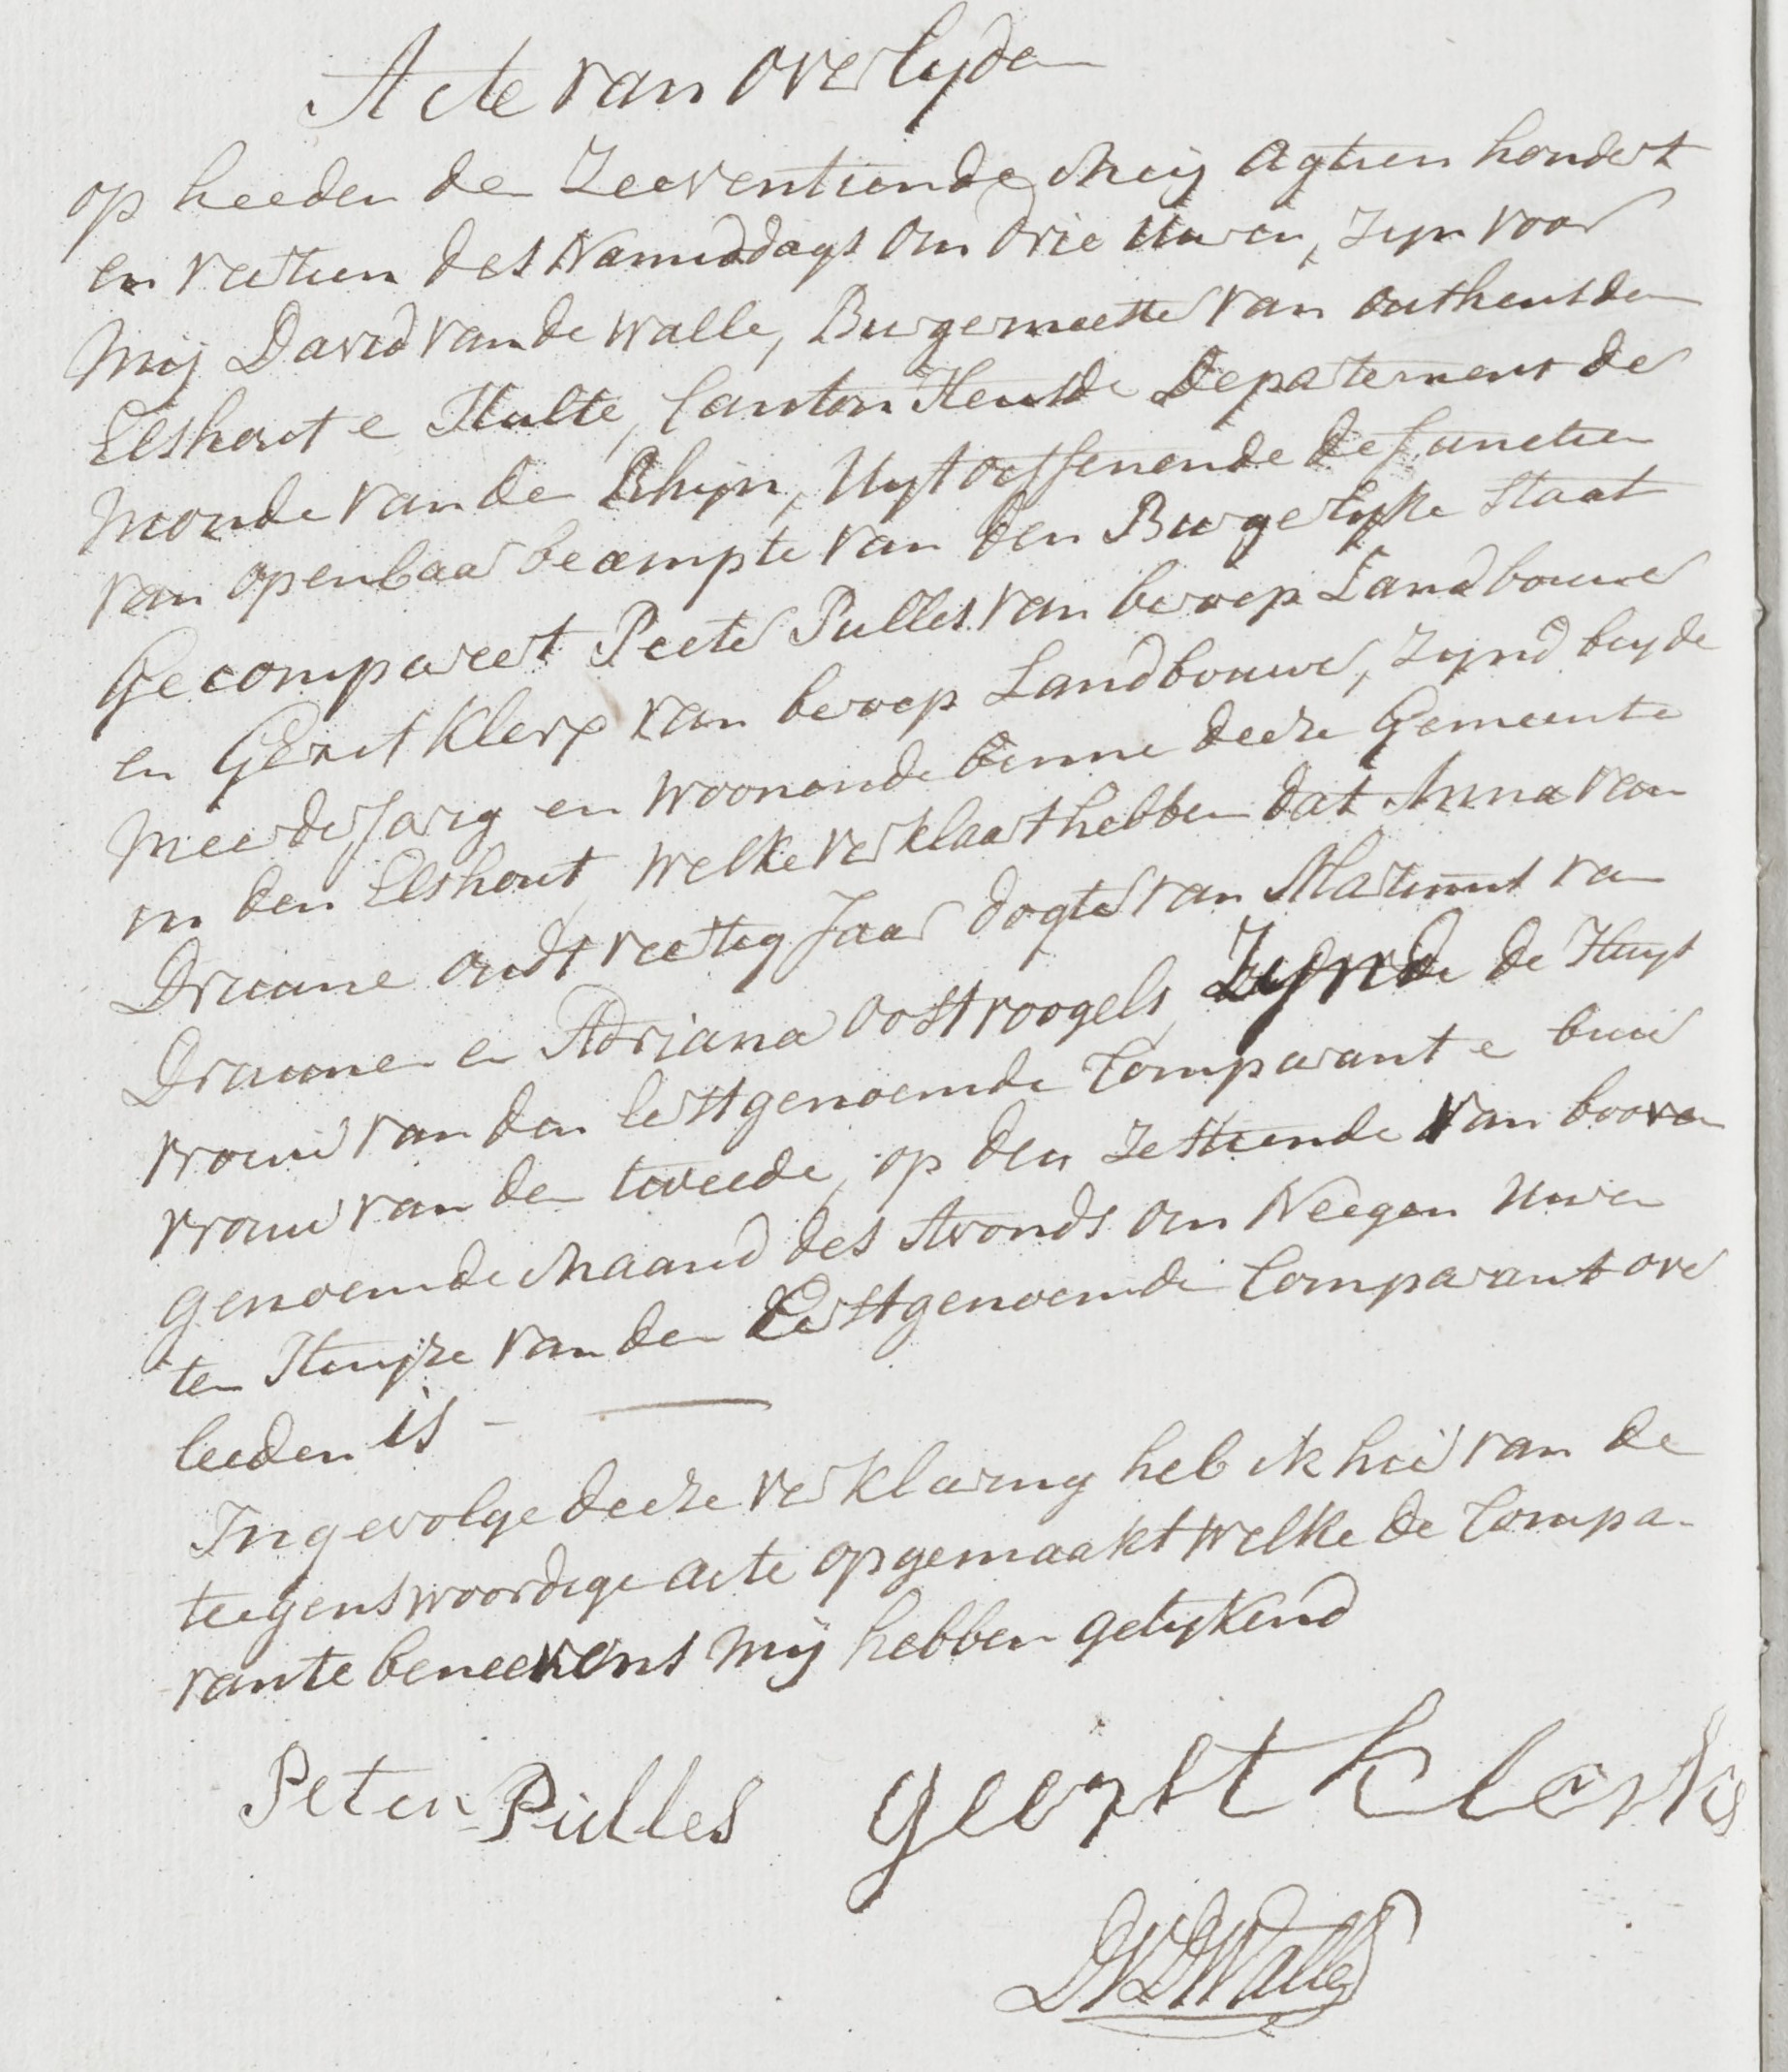 Acte van overlyden
op heeden de Zeeventiende Meij agtien hondert
en veertien des Namiddags om drie Uuren, zyn voor
Mij David van de Walle, Burgemeester van outheusden
Elshout e Hulte, Canton Heusde Departement de
Monde van de Rhijn, Uytoeffenende de functien
van openbaar beampte van den Burgerlyke Staat
Gecompareert Peeter Pulles van beroep Landbouwer
en Gerrit Klerx van beroep Landbouwer, zynd beyde
Meerderjarig en woonende binne deeze Gemeente
in den Elshout, welke verklaart hebben dat Anna van
Drunne oudt veertig Jaar dogter van Martinus van
Drunnen en Adriana Oostvoogels, Zynde de Huys
vrouw van den Eerstgenoemde Comparant e buur
vrouw van den tweede, op den zestiende van booven
genoemde Maand des Avonds om Neegen Uuren
ten Huyze van den Eerstgenoemde Comparant over
leeden is -
Ingevolge deeze verklaring heb ik hier van de
teegenswoordige acte opgemaakt welke de Compa-
rante beneevens mij hebben getykend
Peter Pulles geerit klerks
DVDWalle